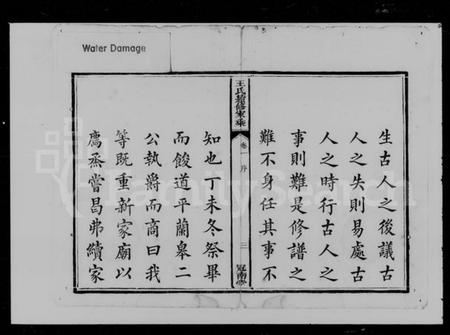 Water Damage
生古人之後議古
人之失則易處古
人之時行古人之
事則難是修譜之
難不身任其事不
王氏續修家乘
卷一 序
三
冠南堂
知也丁未冬祭畢
而餕道平蘭皋二
公執爵而商曰我
等既重新家廟以
薦烝嘗曷弗續家
FamilySearch